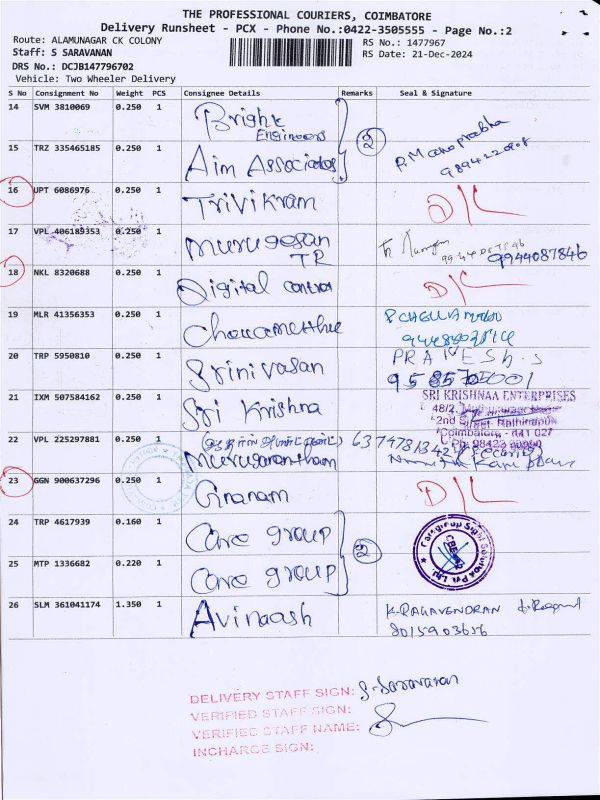 THE PROFESSIONAL COURIERS, COIMBATORE
Delivery Runsheet - PCX - Phone No.:0422-3505555 - Page No.:2
Route: ALAMUNAGAR CK COLONY
RS No.: 1477967
Staff: S SARAVANAN
RS Date: 21-Dec-2024
DRS No.: DCJB147796702
Vehicle: Two Wheeler Delivery
S No Consignment No Weight PCS Consignee Details Remarks Seal & Signature
14 SVM 3810069 0.250 1 Bright Engineers
2
15 TRZ 335465185 0.250 1 Aim Associates
16 UPT 6086976 0.250 1 Trivikram D/L
17 VPL 406183353 0.250 1 Murugesan TR 9944087846
18 NKL 8320688 0.250 1 Digital control D/L
19 MLR 41356353 0.250 1
20 TRP 5950810 0.250 1 Srinivasan PRAVESH.S
21 IXM 507584162 0.250 1 Sri Krishna SRI KRISHNAA ENTERPRISES
48/2,
2nd Street, Rathinapuri
Coimbatore - 641 027
22 VPL 225297881 0.250 1
23 GGN 900637296 0.250 1 Gnanam D/L
24 TRP 4617939 0.160 1 Care group
2
25 MTP 1336682 0.220 1 Care group
26 SLM 361041174 1.350 1 Avinaash K.RAGAVENDRAN
8015903656
DELIVERY STAFF SIGN: S. Saravanan
VERIFIED STAFF SIGN:
VERIFIED STAFF NAME:
INCHARGE SIGN: